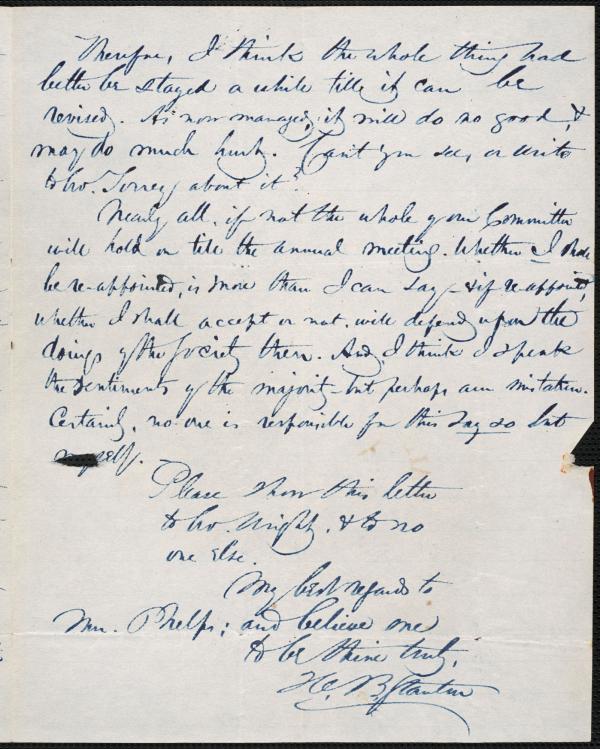 Therefore, I think the whole thing had
better be stayed a while till it can be
revised. As now managed, it will do no good, &
may do much hurt. Can't you see, or write
to bro. Torrey about it?
Nearly all, if not the whole of our Committee
will hold on till the annual meeting. Whether I shall
be re-appointed, is more than I can say - & if re-appointed,
whether I shall accept or not, will depend upon the
doings of the Society then. And, I think I speak
the sentiments of the majority - but perhaps am mistaken.
Certainly, no one is responsible for this say so but
myself.
Please show this letter
to bro. Wright, & to no
one else.
My best regards to
Mrs. Phelps; and believe me
to be thine truly,
H. B. Stanton